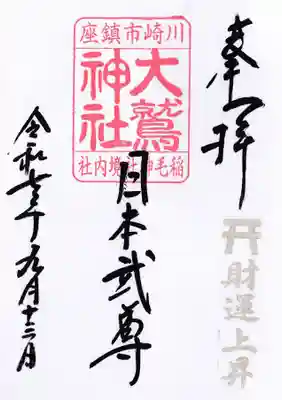 奉拝
財運上昇
川崎市鎮座
大鷲神社
稲毛神社境内社
日本武尊
令和七年九月十三日